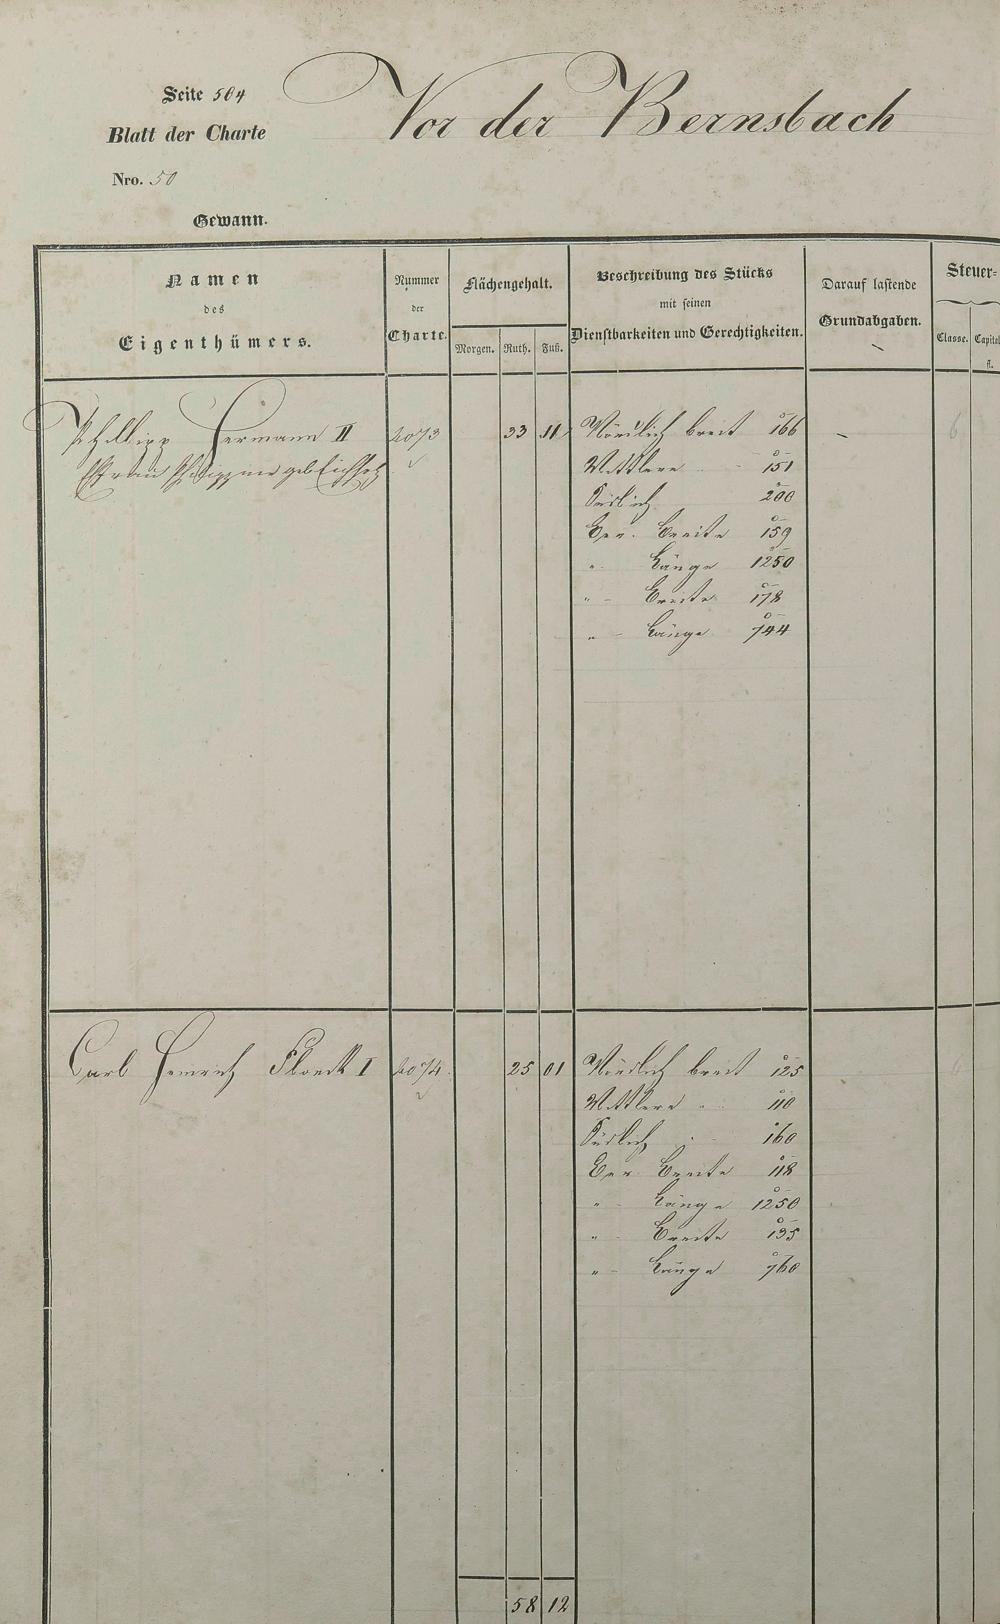 Seite 504
Vor der Bernsbach
Blatt der Charte
Nro. 50
Gewann.
Namen des Eigenthümers.
Nummer der Charte.
Flächengehalt.
Morgen. Ruth. Fuß.
Beschreibung des Stücks
mit seinen
Dienstbarkeiten und Gerechtigkeiten.
Darauf lastende
Grundabgaben.
Steuer-
Classe. Capital
fl.
Philipp Hermann II 2073 33 11 Nördlich breit 166 6
Ehfrau Philippine geb.
Mittlere " 151
Südlich 200
Ber. Breite 159
" Länge 1250
" Breite 178
" Länge 744
Carl Heinrich Flock I 2074 25 01 Nördlich breit 125 6
Mittlere " 110
Südlich " 160
Ber. Breite 118
" Länge 1250
" Breite 135
" Länge 760
58 12